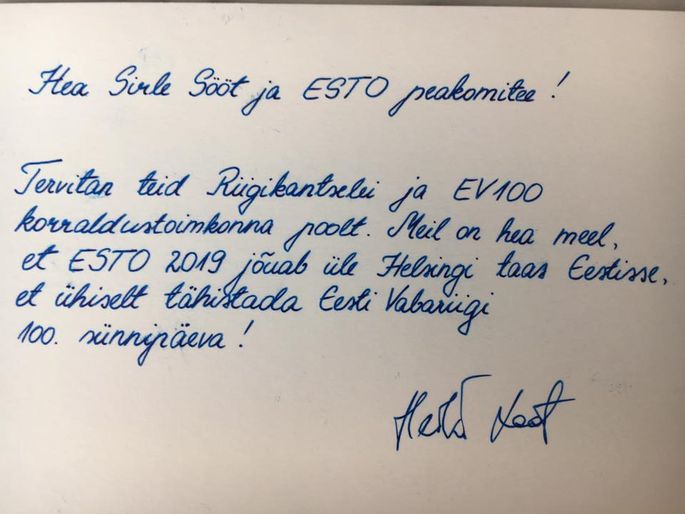 Hea Sirle Sööt ja ESTO peakomitee!
Tervitan teid Riigikantselei ja EV100
korraldustoimkonna poolt. Meil on hea meel,
et ESTO 2019 jõuab üle Helsingi taas Eestisse,
et ühiselt tähistada Eesti Vabariigi
100. sünnipäeva!